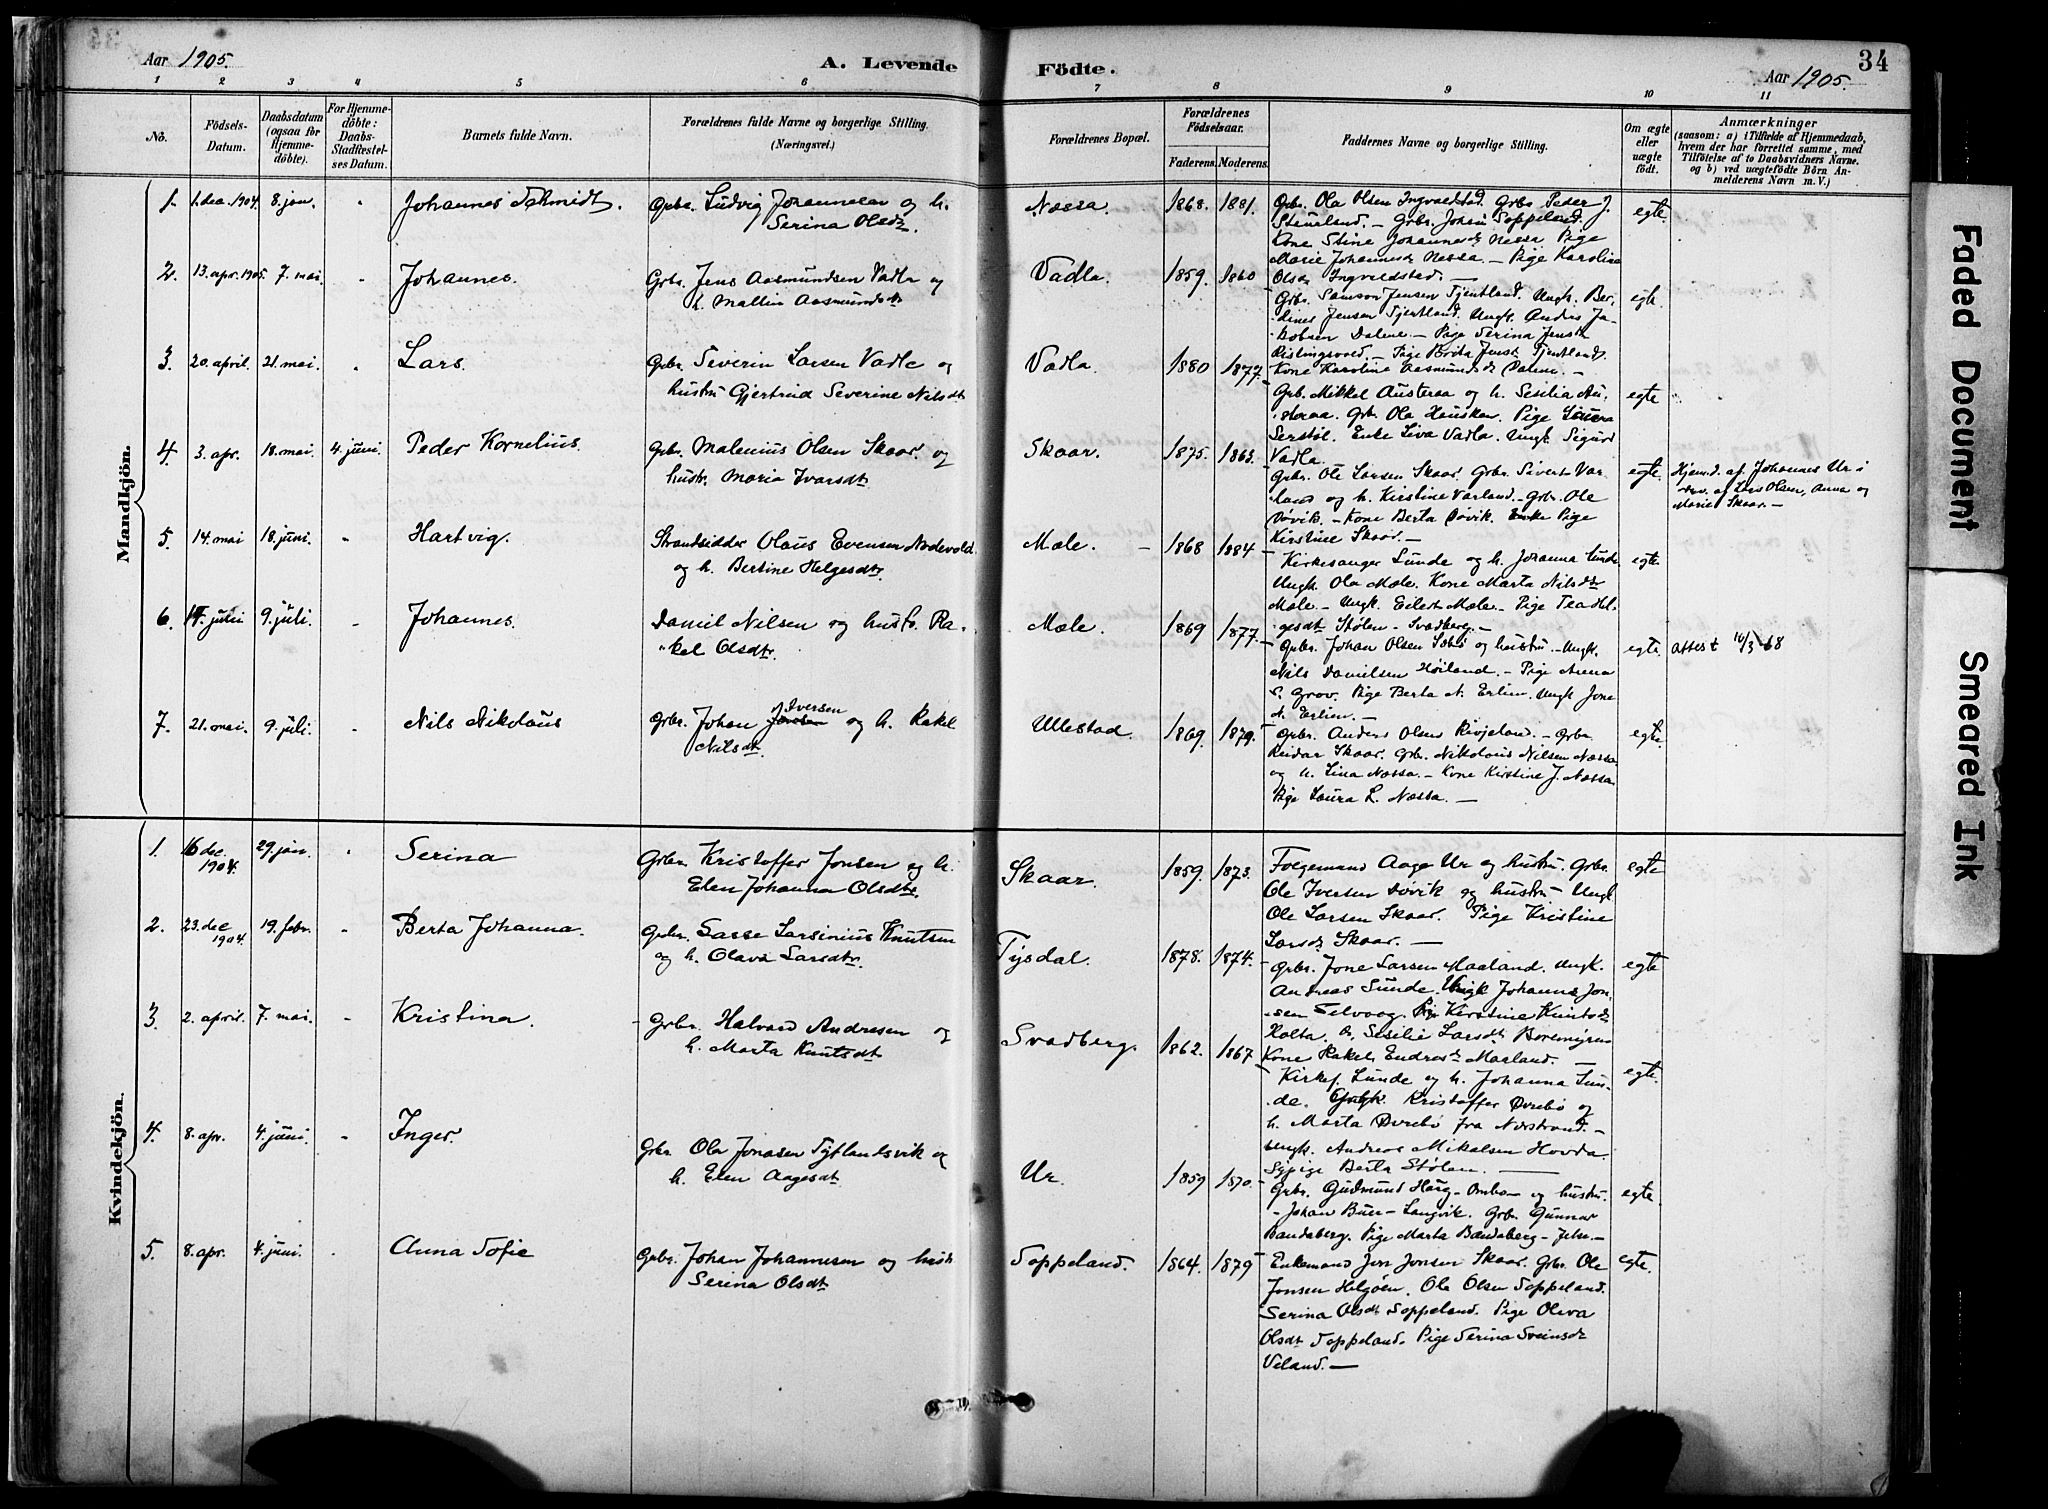 Aar 1905.
A. Levende Födte.
34
Aar 1905.
1 2 3 4 5 6 7 8 9 10 11
No.
Födsels-Datum.
Daabsdatum (ogsaa for Hjemmedöbte).
For Hjemmedöbte: Daabs-Stadfæstelses Datum.
Barnets fulde Navn.
Forældrenes fulde Navne og borgerlige Stilling.
(Næringsvei.)
Forældrenes Bopæl.
Forældrenes Födselsaar.
Faderens. Moderens.
Faddernes Navne og borgerlige Stilling.
Om ægte eller uægte födt.
Anmærkninger
(saasom: a) i Tilfælde af Hjemmedaab,
hvem der har forrettet samme, med
Tilföielse af to Daabsvidners Navne.
og b) ved uægtefödte Börn Anmelderens Navn m.V.)
Mandkjön.
1. 1. dec. 1904. 8. jan. " Johannes Schmidt. Grbr. Ludvig Johannesen og h.
Serina Olsdtr.
Næssa. 1868. 1881.
Grbr. Ola Olsen Ingvaldstad. Grbr. Peder J.
Stensland. – Grbr. Johan Soppeland.
Kone Stine Johannesdtr Nessa. Pige
Marie Johannesdtr Nessa. – Pige Karoline
Olsdtr Ingvaldstad. –
egte.
2. 13. apr. 1905. 7. mai. " Johannes. Grbr. Jens Aasmundsen Vadla og
h. Mallin Aasmundsdtr
Vadla. 1859. 1860
Grbr. Samson Jensen Tjentland. Ungk. Ber-
dines Jensen Tjentland. Ungk. Andres Ja-
kobsen Dalene. – Pige Serina Jensdtr
Ristingsvold. – Pige Brita Jensdtr Tjentland.
Kone Karoline Aasmundsdtr Dalene. –
egte.
3. 20. april. 21. mai. " Lars. Grbr. Severin Larsen Vadla og
hustru Gjertrud Severine Nilsdtr
Vadla. 1880 1877.
Grb. Mikkel Austeraa og h. Sesilia Au-
steraa. Grb. Ola Hausken. Pige Laura
Serstöl. Enke Liva Vadla. Ungk. Sigurd
Vadla.
egte
4. 3. apr. 18. mai. 4. juni. Peder Kornelius. Grbr. Malenius Olsen Skaar. og
hustr. Maria Ivarsdtr
Skaar. 1875. 1863.
Grbr. Ole Larsen Skaar. Grbr. Sivert Var-
land og h. Kirstine Varland. – Grbr. Ole
Vövik. – Kone Berta Dövik. Enke Pige
Kirstine Skaar. –
egte.
Hjemd. af Johannes Ur i
nærv. af Lars Olsen, Anna og
Marie Skaar. –
5. 14. mai 18. juni. " Hartvig. Strandsidder Olaus Evensen Nodevold
og h. Bertine Helgesdtr.
Mæle. 1868 1884
Kirkesanger Lunde og h. Johanna Lunde
Ungk. Ola Mæle. Kone Marta Nilsdtr
Mæle. – Ungk. Eilert Mæle. – Pige
gesdtr Stölen – Svadberg. –
egte.
6. 14. juli 9. juli. " Johannes. Daniel Nilsen og hustr. Ra-
kel Olsdtr.
Mæle. 1869 1877.
Grbr. Johan Olsen og hustru. – Ungk.
Nils Danielsen Höiland. – Pige Anna
S. Grov. Pige Berta N. Erlien. Ungk. Jone
N. Erlien. –
egte.
attest 16/3 68
7. 21. mai. 9. juli. Nils Nikolaus Grbr. Johan Jonsen Iversen og h. Rakel
Nilsdtr.
Ullestad. 1869. 1879.
Grbr. Anders Olsen Rivjeland. – Grbr.
Reidar Skaar. Grb. Nikolaus Nilsen Næssa
og h. Lina Næssa. – Kone Kirstine J. Næssa
Pige Laura L. Næssa. –
egte.
Kvindekjön.
1. 16. dec. 1904. 29. jan. " Serina Grbr. Kristoffer Jonsen og h.
Elen Johanna Olsdtr.
Skaar. 1859. 1873.
Folgemand Aage Ur og hustru. Grbr.
Ole Iversen Dövik og hustru – Ungk.
Ole Larsen Skaar. Pige Kristine
Larsdtr Skaar. –
egte
2. 23. dec 1904. 19. febr. " Berta Johanna. Grbr. Lasse Larsinius Knutsen
og h. Olava Larsdtr.
Tysdal. 1878. 1874.
Grbr. Jone Larsen Maaland. Ungk.
Andreas Sunde. Ungk Johannes Jon-
sen Selvaag. Pige Kirstine Knutsdtr
Holta. Sesilie Larsdtr
Kone Rakel Endresdtr Maaland. –
egte
3. 2. april. 7. mai. " Kristina. Grbr. Halvard Andresen og
h. Marta Knutsdtr
Svadberg. 1862. 1867
Kirkes. Lunde og h. Johanna Lun-
de. Kristoffer Övrebö og
h. Marta Övrebö fra Nærstrand. –
Ungk. Andreas Mikalsen Hovda.
Berta Stölen. –
egte.
4. 8. apr. 4. juni. " Inger. Grbr. Ola Jonasen Tytlandsvik og
h. Elen Aagesdtr
Ur. 1859 1870.
Grbr. Gudmund Haug – Ombo – og hustru.
– Johan Buer – Langvik. Grbr. Gunnar
Bandaberg. Pige Marta Bandaberg – Jelse. –
egte.
5. 8. apr. 4. juni. " Anna Sofie Grbr. Johan Johannesen og hustr
Serina Olsdtr
Soppeland. 1864. 1879
Enkemand Jon Jonsen Skaar. Grbr. Ole
Jonsen Helgöen. Ola Olsen Soppeland.
Serina Olsdtr Soppeland. Pige Oliva
Olsdtr Soppeland. Pige Serina Sveinsdtr
Veland. –
egte.
Faded Document
Smeared Ink